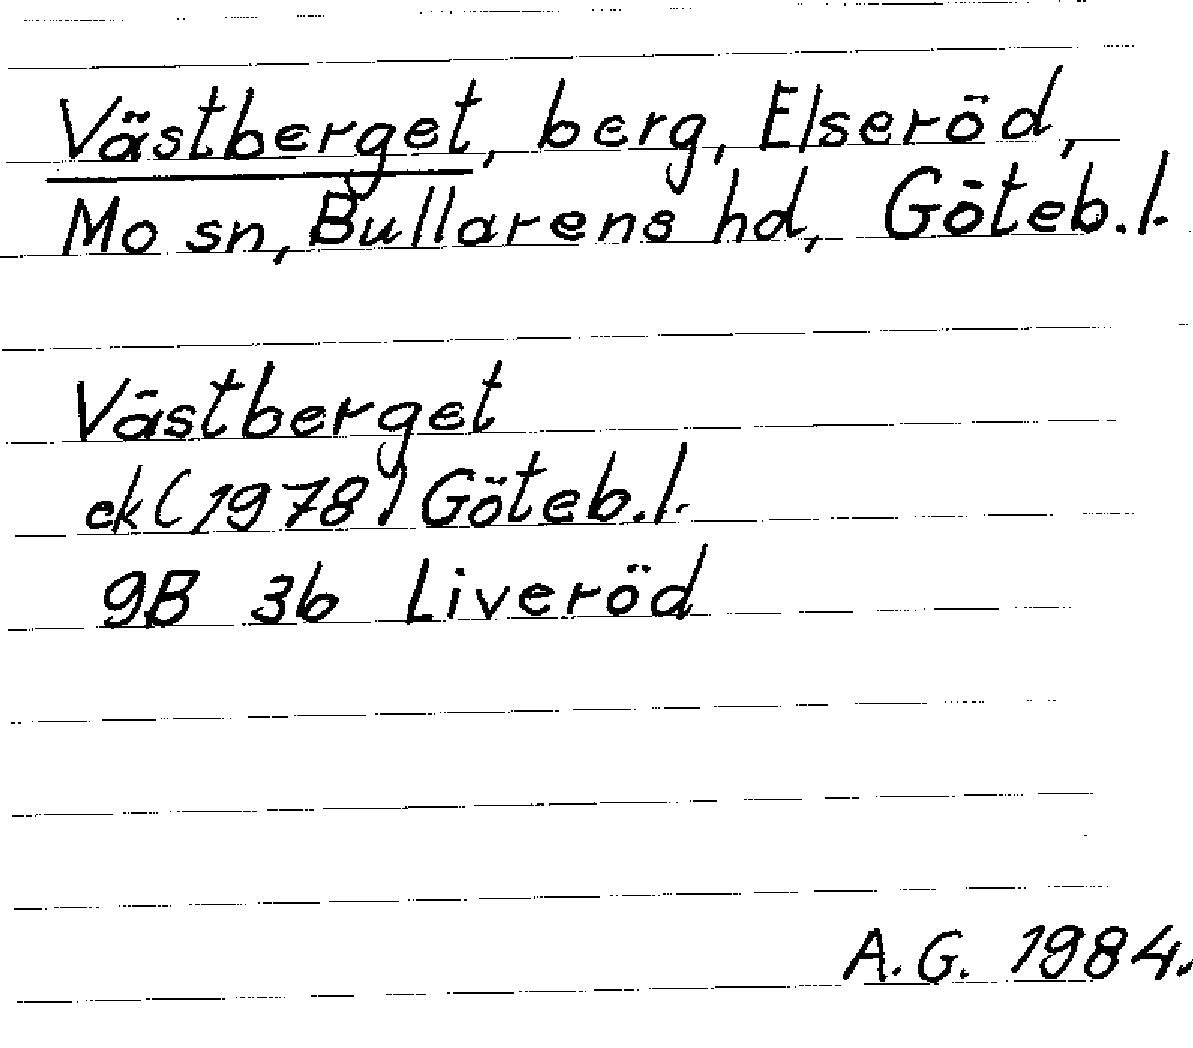 Västberget, berg, Elseröd,
Mo sn, Bullarens hd, Göteb.l.
Västberget
ek (1978) Göteb.l.
9B 3b Liveröd
A.G. 1984.